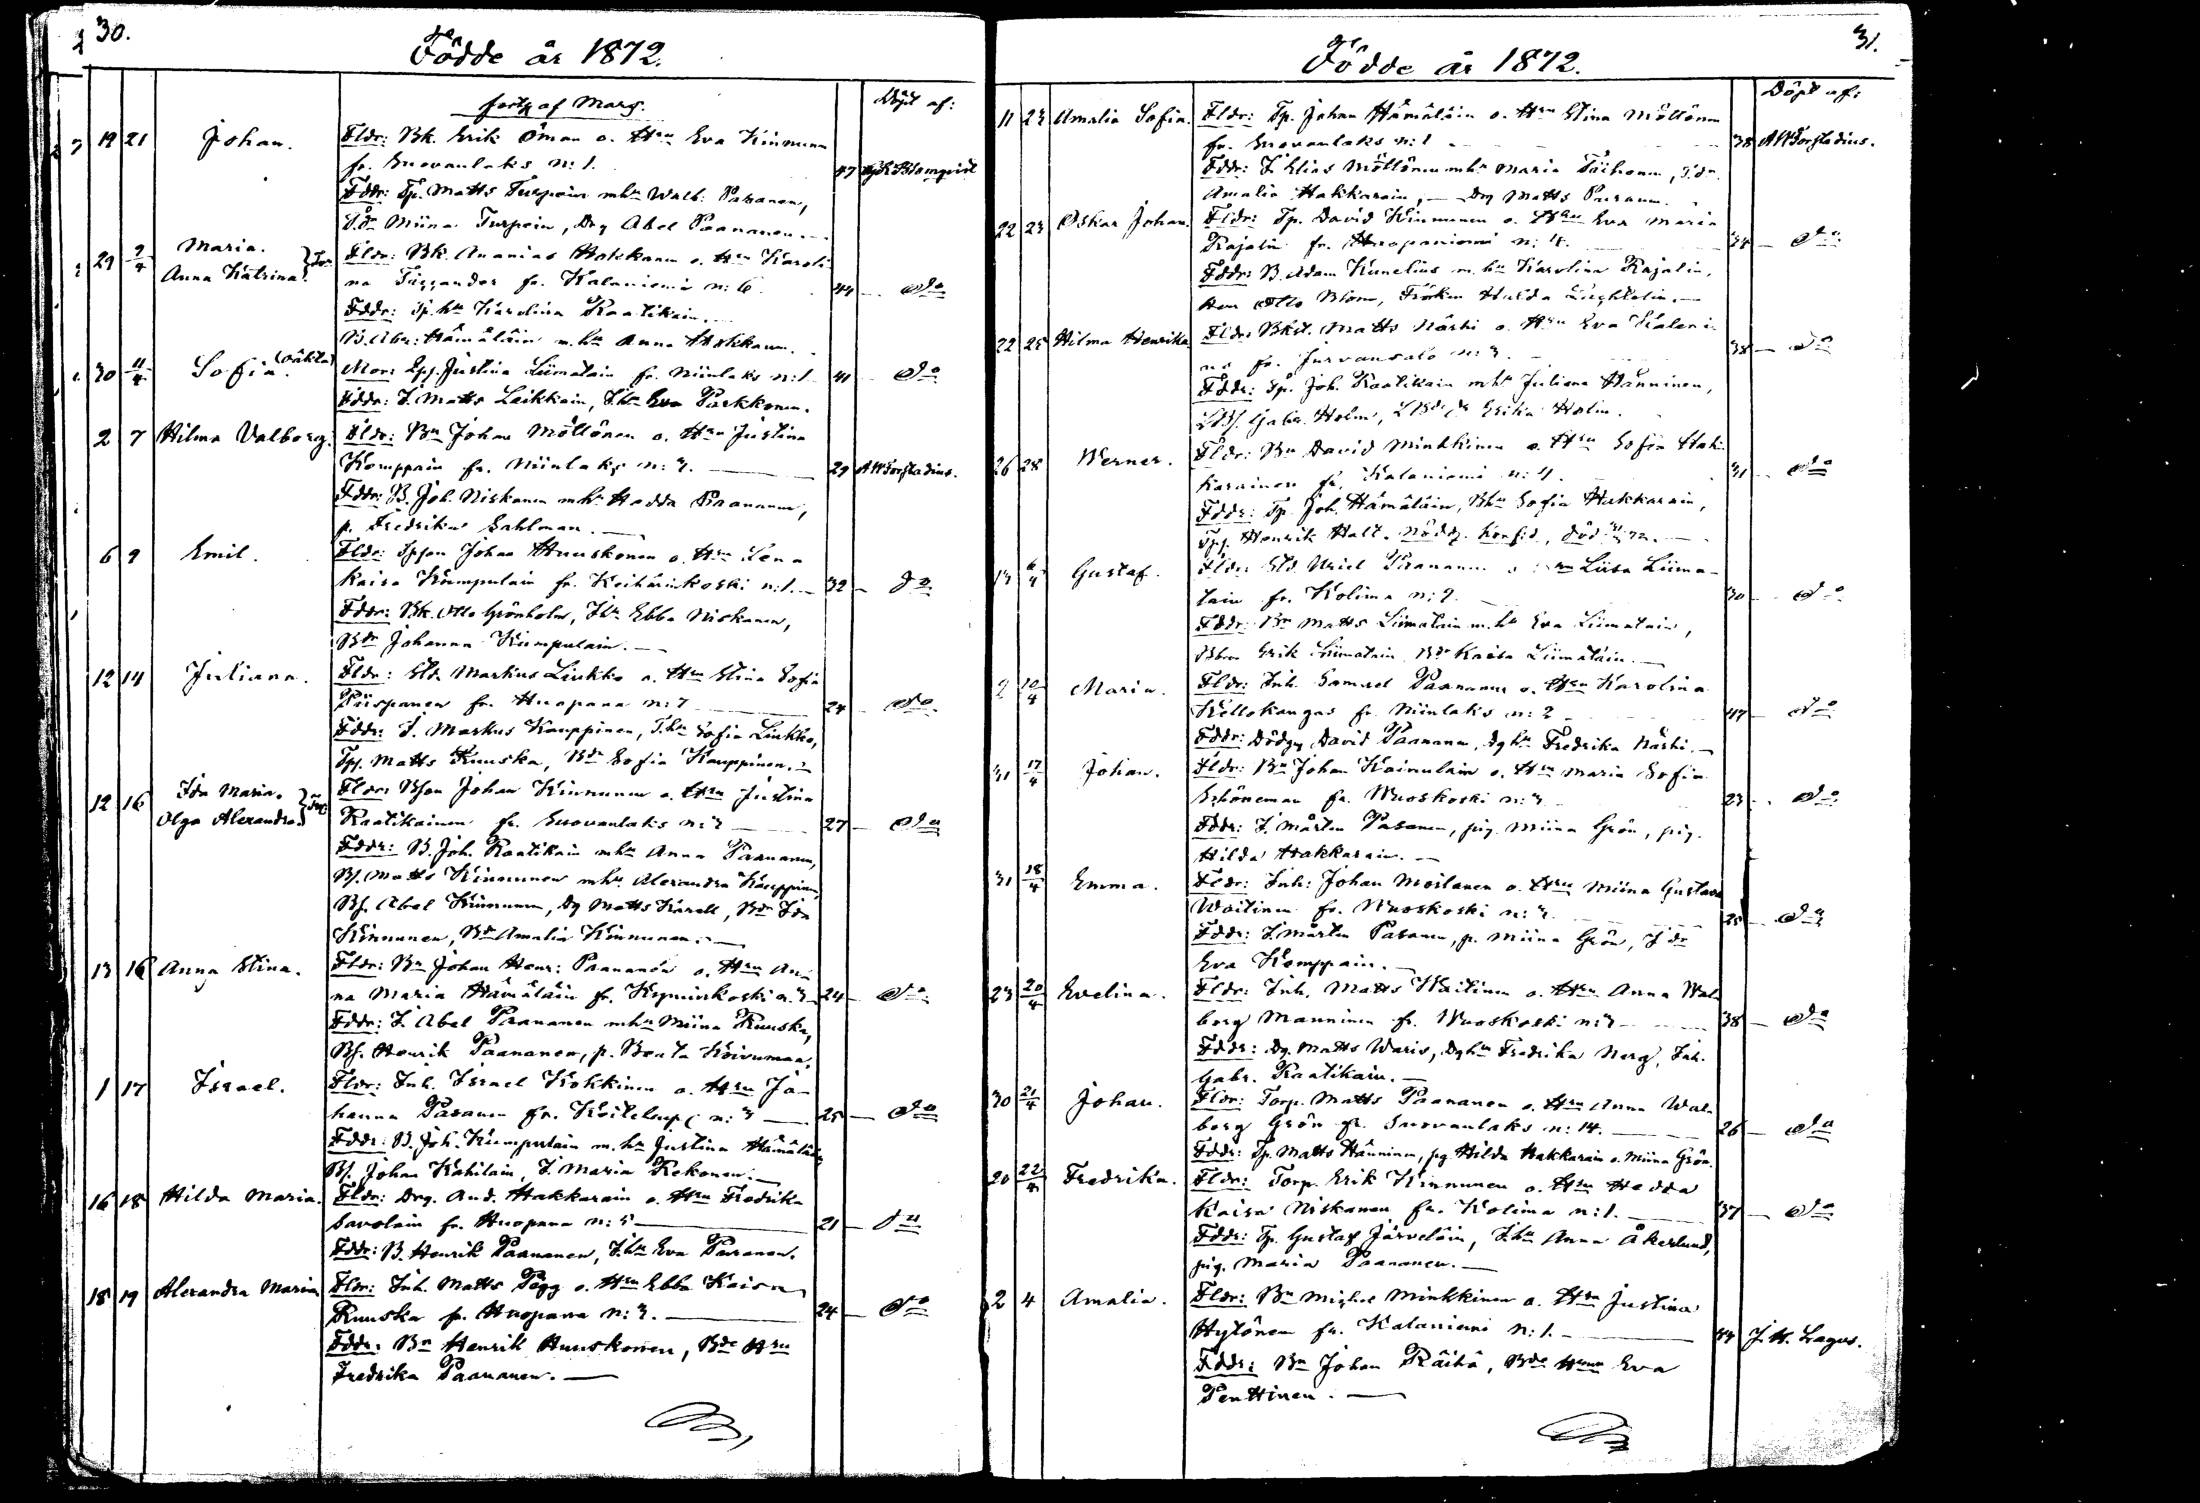 30.
Födde år 1872.
forts. af Mars.
Döpt af:
19 21 Johan. Fldr: Bk. Erik Öman o. Hru Eva Kinnunen
fr. Suovanlaks n: 1. 47 Blomqvist
Fddr: Tp. Matts Turpein mhu Walb: Pasanen,
Miina Turpein, Drg Abel Paananen.
29 2/4 Maria. Anna Katrina. Fldr: Bk. Ananias Hokkanen o. Hru Karoli-
na fr. Kalaniemi n: 6. 44 do
Fddr: Tp. hu Karolina Raatikain.
B. Abr: Hämäläin m. hu Anna Hokkanen.
30 11/4 Sofia (oäkta) Mor: Justina Liimatain fr. Niinlaks n: 1 41 do
Fddr: I. Matts Leikkain, I.hu Eva Parkkonen.
2 7 Hilma Valborg. Fldr: Bn Johan Möttönen o. Hru Justina
Komppain fr. Niinlaks n: 3. 29 A W Forstadius.
Fddr: B. Joh. Niskanen mhu Hedda Paananen,
p. Fredrika Sahlman.
6 9 Emil. Fldr: Johan Huuskonen o. Hru Lena
Kaisa Kumpulain fr. Keihärinkoski n: 1. 32 do
Fddr: Bk. Otto Grönholm, I.hu Ebba Niskanen,
Bdr Johanna Kumpulain.
12 14 Juliana. Fldr: Markus Linkko o. Hru Stina Sofia
Piispanen fr. Huopana n: 7 24 do
Fddr: I. Markus Kauppinen, I.hu Sofia Linkko,
Matts Ruuska, Bdr Sofia Kauppinen.
12 16 Ida Maria. Olga Alexandra. Fldr: Bson Johan Kinnunen o. Hru Justina
Raatikainen fr. Suovanlaks n: 3 27 do
Fddr: B. Joh. Raatikain mhu Anna Paananen,
Bs. Matts Kinnunen mhu Alexandra Kauppinen,
Bs. Abel Kinnunen, Dg Matts Karell, Bdr Ida
Kinnunen, Bdr Amalia Kinnunen.
13 16 Anna Stina. Fldr: Bn Johan Henr: Paananen o. Hru An-
na Maria Hämäläin fr. Kyminkoski n. 3 24 do
Fddr: I. Abel Paananen mhu Miina Ruuska,
Bs. Henrik Paananen, p. Beata Koivumaa.
1 17 Israel. Fldr: Inh. Israel Kokkinen o. Hru Jo-
hanna Pasanen fr. n: 3 25 do
Fddr: B. Joh. Kumpulain m. hu Justina Hämäläin,
Bs. Johan Kahilain, I. Maria Rekonen.
16 18 Hilda Maria. Fldr: Drg. And. Hakkarain o. Hru Fredrika
Savolain fr. Huopana n: 5 21 do
Fddr: B. Henrik Paananen, I.hu Eva Pasanen.
18 19 Alexandra Maria Fldr: Inh. Matts Pögg o. Hru Ebba Kaisa
Ruuska fr. Huopana n: 3. 24 do
Fddr: Bn Henrik Huuskonen, Bde Hru
Fredrika Paananen.
31.
Födde år 1872.
Döpt af:
11 23 Amalia Sofia. Fldr: Tp. Johan Hämäläin o. Hru Stina Möttönen
fr. Suovanlaks n: 1 38 A W Forstadius.
Fddr: I. Elias Möttönen mhu Maria Tiihonen, I.dr.
Amalia Hakkarain, Drg Matts Pasanen.
22 23 Oskar Johan. Fldr: Tp. David Kinnunen o. Hru Eva Maria
Rajalin fr. Huopaniemi n: 4. 34 do
Fddr: B. Adam Kunelius m. hu Karolina Rajalin,
Herr Otto Blom, Fröken Hulda
22 25 Hilma Henrika Fldr: Matts Närhi o. Hru Eva Kateri-
na fr. Jurvansalo n: 3. 38 do
Fddr: Tp. Joh. Raatikain mhu Juliana Hänninen,
Gabr. Holm, Erika Holm.
26 28 Werner. Fldr: Bn David Minkkinen o. Hru Sofia Hak-
karainen fr. Kalaniemi n: 4. 31 do
Fddr: Tp. Joh. Hämäläin, Bhu Sofia Hakkarain,
Henrik Halt.
13 6/4 Gustaf. Fldr: Uriel Paananen o. Hru Liisa Liima-
tain fr. Kolima n: 2. 30 do
Fddr: Bn Matts Liimatain m. hu Eva Liimatain,
Erik Liimatain, Bdr Kaisa Liimatain.
2 10/4 Maria. Fldr: Inh. Samuel Paananen o. Hru Karolina
Kellokangas fr. Niinlaks n: 2 47 do
Fddr: David Paananen, Dghu Fredrika Närhi.
31 17/4 Johan. Fldr: Bn Johan Kainulain o. Hru Maria Sofia
Schöneman fr. Wuoskoski n: 3 23 do
Fddr: I. Mårten Pasanen, pig. Miina Grön, pig.
Hilda Hakkarain.
31 18/4 Emma. Fldr: Inh: Johan Moilanen o. Hru Miina Gustava
Woitinen fr. Wuoskoski n: 3. 25 do
Fddr: I. Mårten Pasanen, p. Miina Grön, I dr
Eva Komppain.
23 20/4 Evelina. Fldr: Inh. Matts Waitinen o. Hru Anna Wal-
borg Manninen fr. Wuoskoski n: 3 38 do
Fddr: Dg. Matts Waris, Dghu Fredrika Narg, Inh.
Gabr. Raatikain.
30 21/4 Johan. Fldr: Torp. Matts Paananen o. Hru Anna Wal-
borg Grön fr. Suovanlaks n: 14. 26 do
Fddr: Tp. Matts Hänninen, pg Hilda Hakkarain o. Miina Grön.
20 22/4 Fredrika. Fldr: Torp. Erik Kinnunen o. Hru Hedda
Kaisa Niskanen fr. Kolima n: 1. 37 do
Fddr: Tp. Gustaf Järveläin, I.hu Anna Åkerlund,
pig. Maria Paananen.
2 4 Amalia. Fldr: Bn Michel Minkkinen o. Hru Justina
Hytönen fr. Kalaniemi n: 1. 44 J. H. Lagus.
Fddr: Bn Johan Räihä, Bde Hrun Eva
Penttinen.